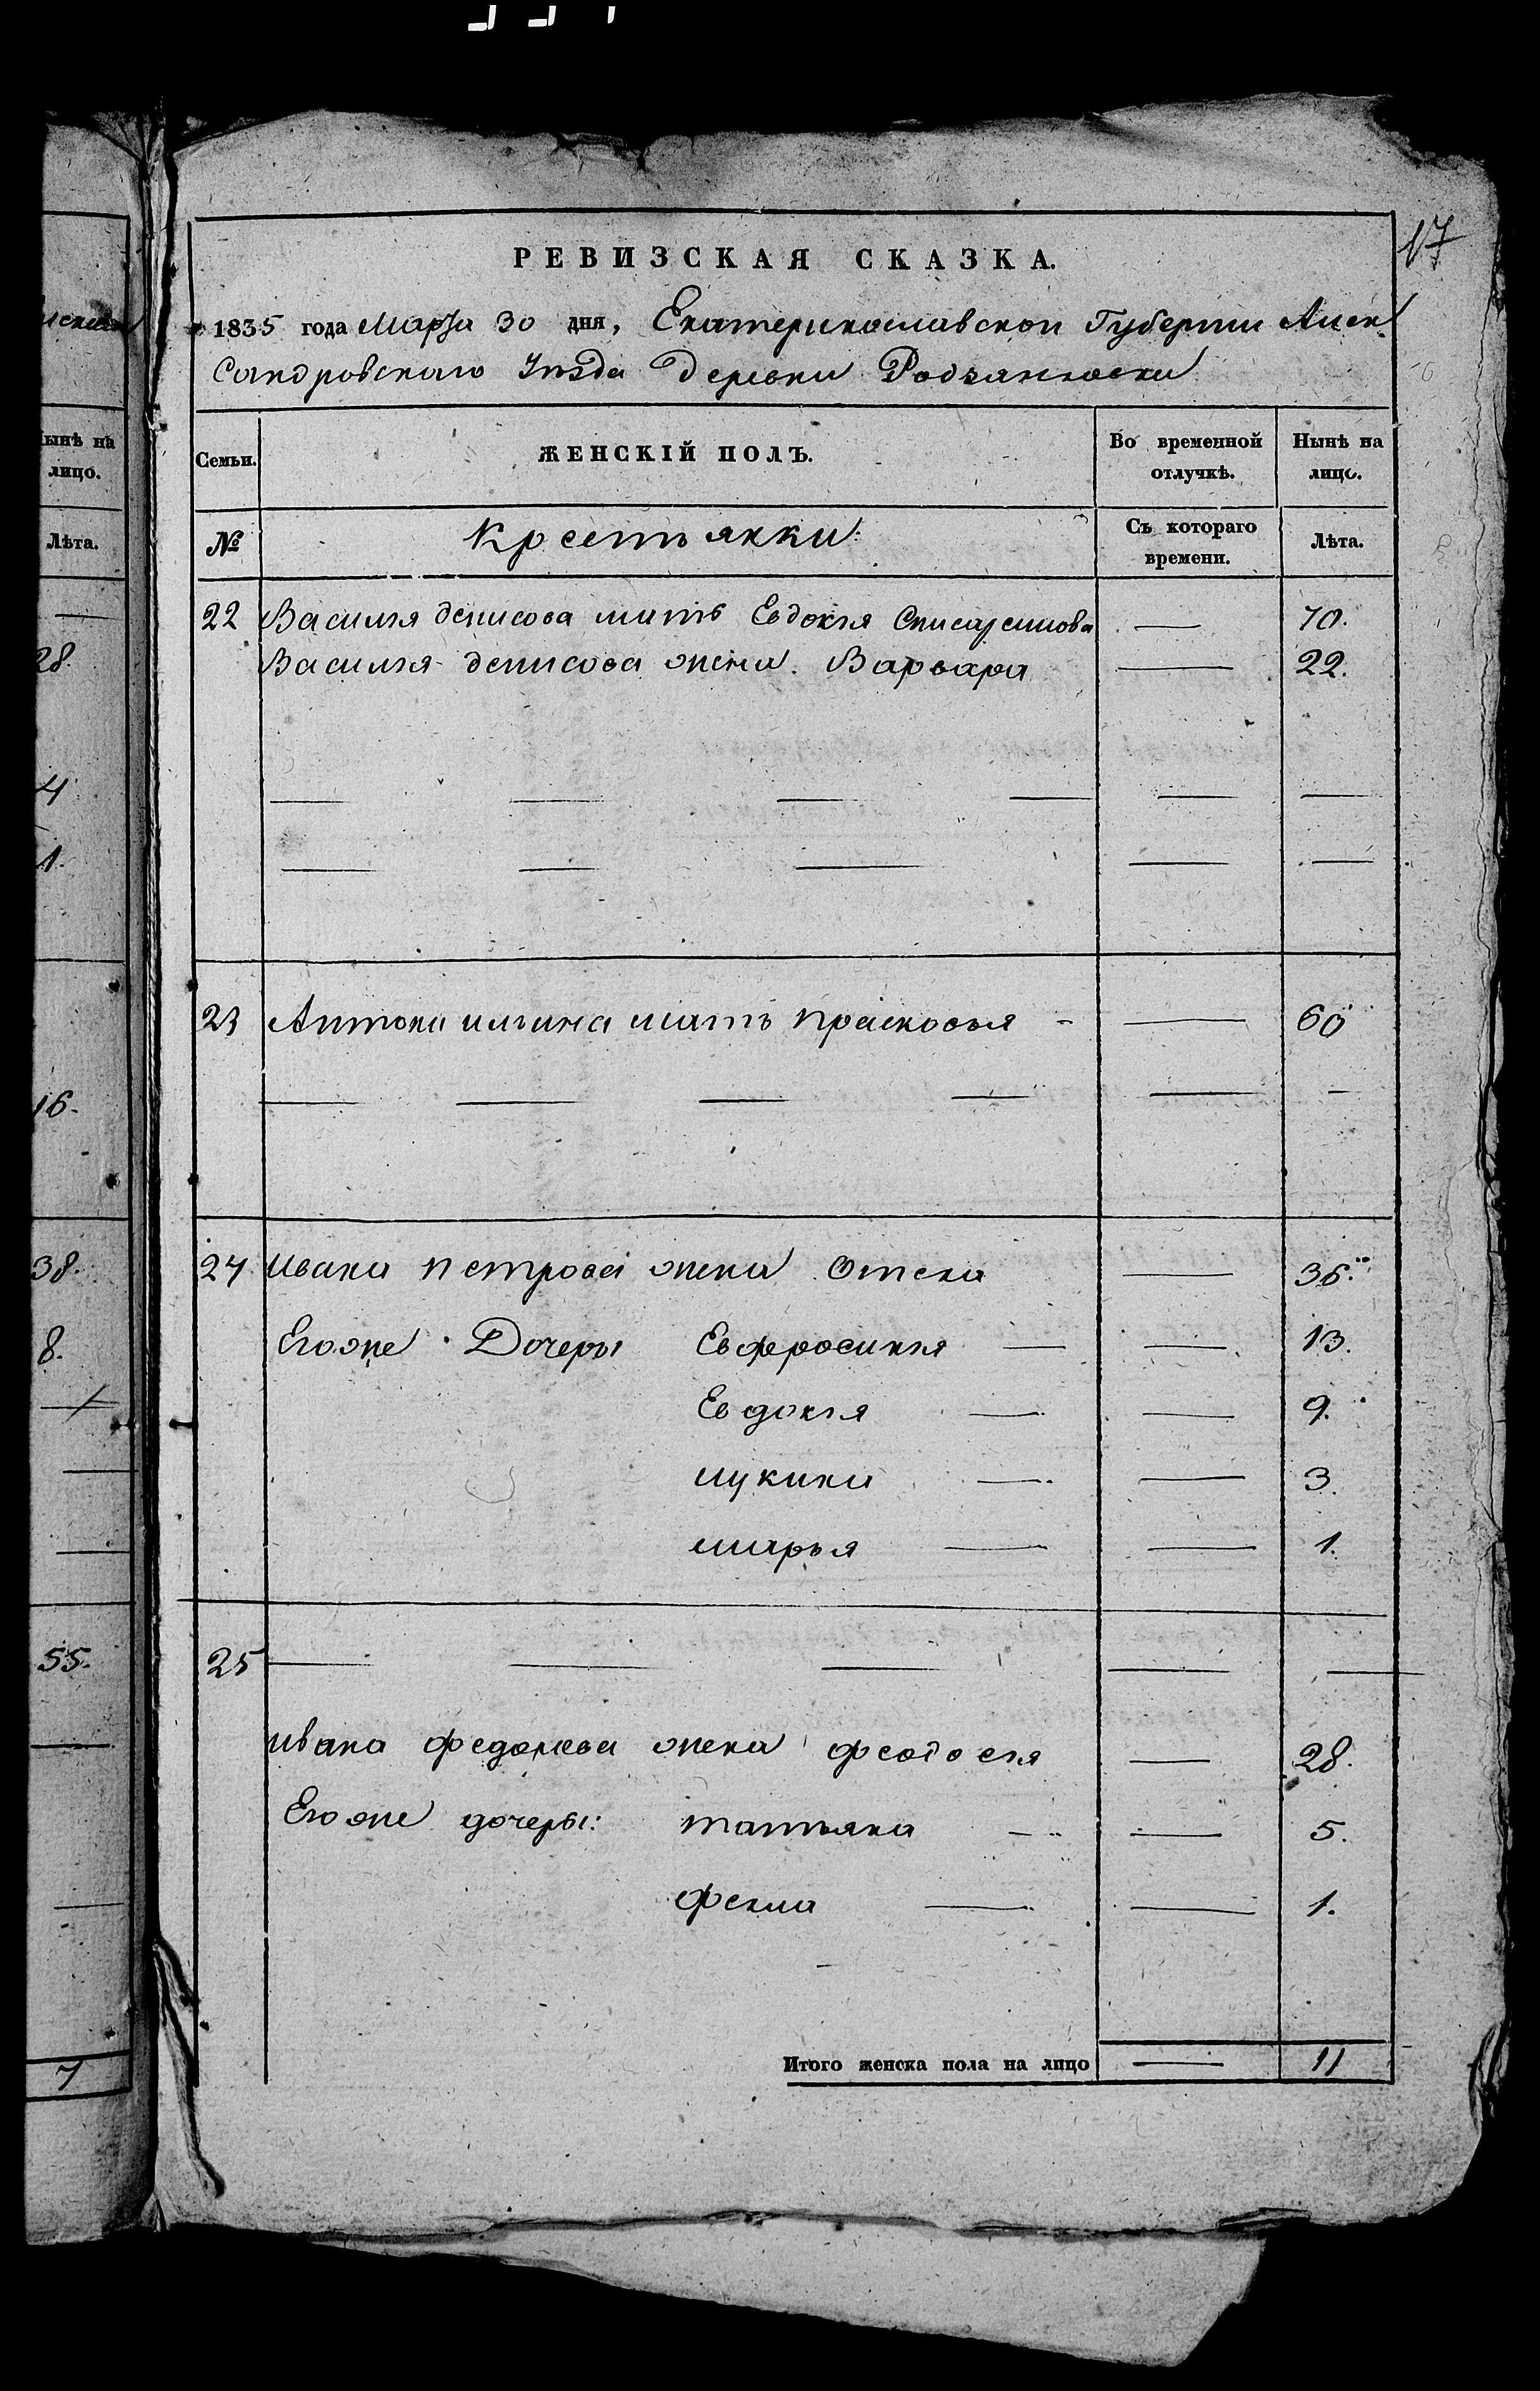 17
РЕВИЗСКАЯ СКАЗКА.
1835 года Марта 30 дня, Екатеринославской Губернии Алек
сандровскаго Уѣзда Деревни Родзянковки
Семьи. ЖЕНСКІЙ ПОЛЪ. Во временной отлучкѣ. Нынѣ на лицо.
№ Крестьянки: Съ котораго времени. Лѣта.
22 Василія денисова мать Евдокія — 70.
Василія денисова жена Варвара — 22.
— — — — — —
— — — — —
23 Антона ильина мать прасковья - — 60
— — — — — -
24 Ивана петрова жена — 36.
Его же Дочери Евфросинія — — 13.
Евдокія — — 9.
— — 3.
марья — — 1.
25 — — — — —
ивана федорова жена феодосія — 28.
Его же дочери: татьяна — — 5.
фекла — — 1.
Итого женска пола на лицо — 11
ынѣ на
лицо.
Лѣта.
—
28.
4
1.
16.
38.
8.
—
—
—
55.
—
—
7